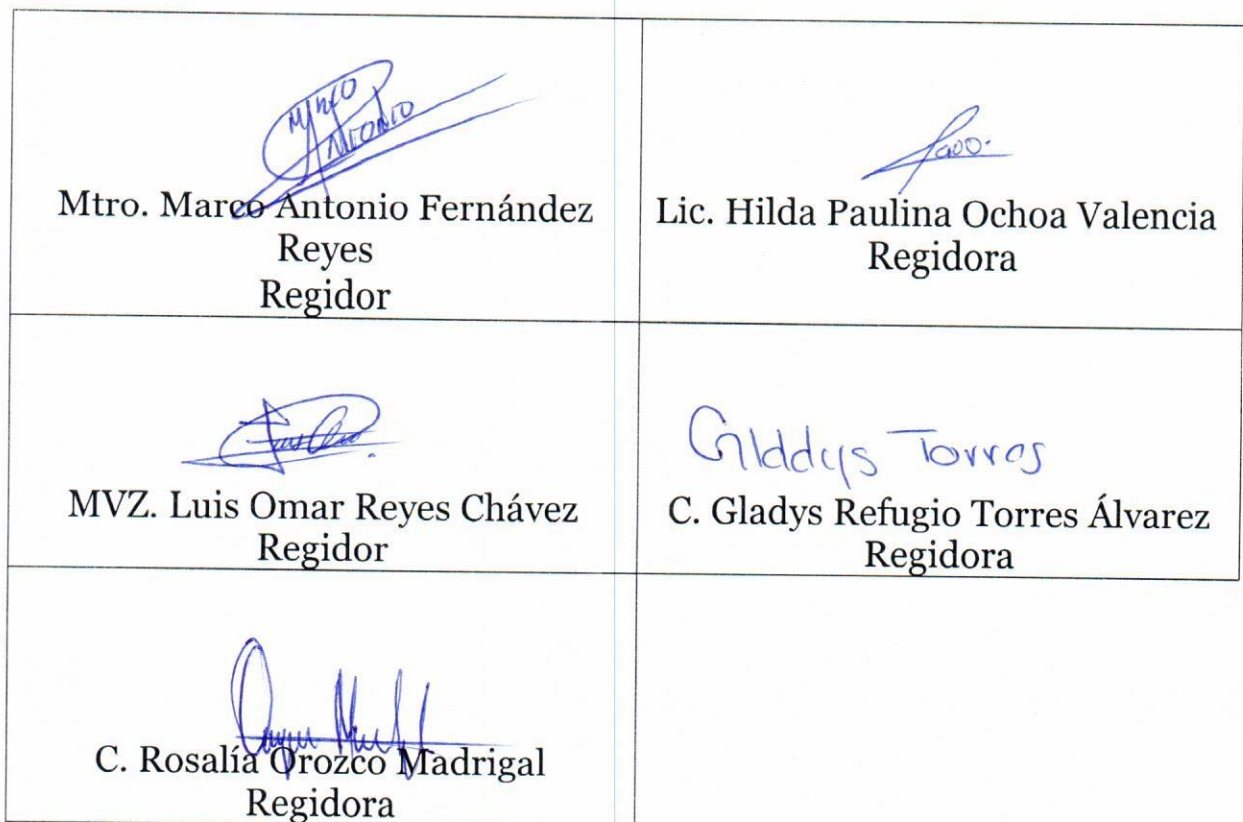 MARCO
ANTONIO
Mtro. Marco Antonio Fernández
Reyes
Regidor
Lic. Hilda Paulina Ochoa Valencia
Regidora
MVZ. Luis Omar Reyes Chávez
Regidor
Gladdys Torres
C. Gladys Refugio Torres Álvarez
Regidora
C. Rosalía Orozco Madrigal
Regidora